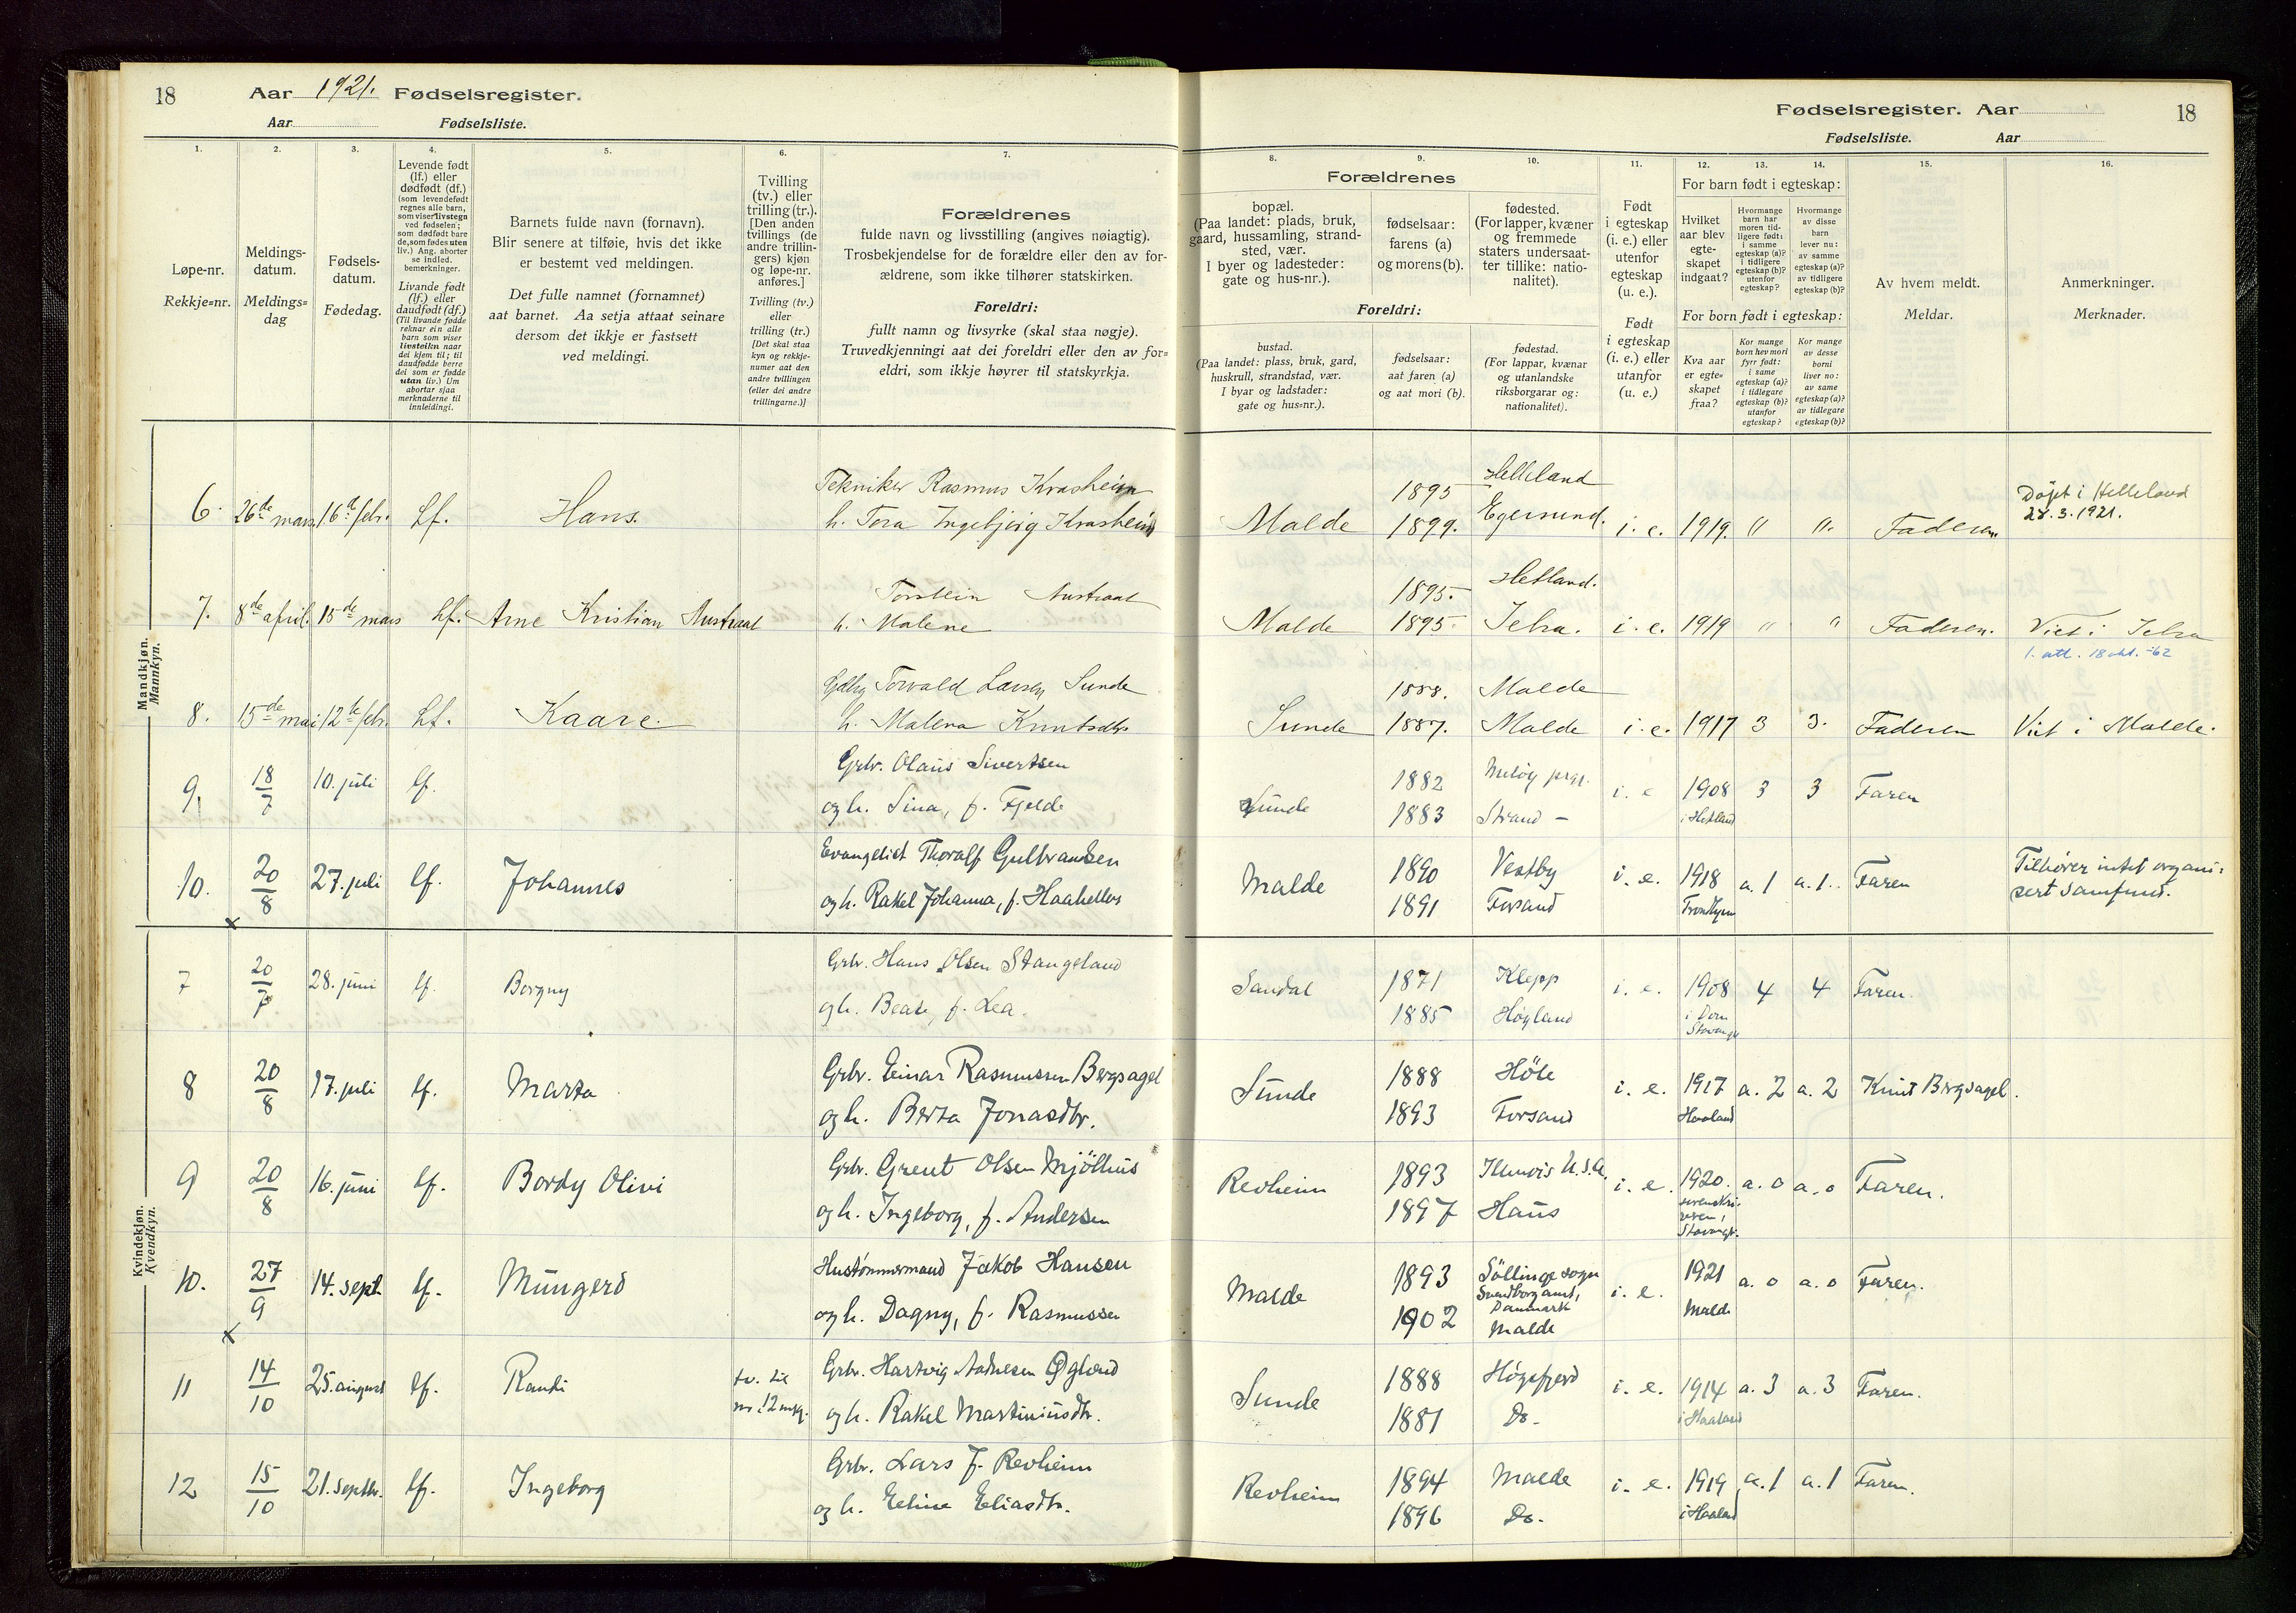 18 Aar 1921. Fødselsregister.
Aar Fødselsliste.
Fødselsregister. Aar 18
Fødselsliste. Aar
1. 2. 3. 4. 5. 6. 7.
Løpe-nr.
Rekkje=nr.
Meldings-
datum.
Meldings=
dag
Fødsels-
datum.
Fødedag.
Levende født
(lf.) eller
dødfødt (df.)
(som levendefødt
regnes alle barn,
som viser livstegn
ved fødselen;
som dødfødt bare
de, som fødes uten
liv.) Ang. aborter
se indled.
bemerkninger.
Livande født
(lf.) eller
daudfødt (df.)
(Til livande fødde
reknar ein alle
barn som viser
livsteikn naar
dei kjem til; til
daudfødde berre
dei som er fødde
utan liv.) Um
abortar sjaa
merknaderne til
innleidingi.
Barnets fulde navn (fornavn).
Blir senere at tilføie, hvis det ikke
er bestemt ved meldingen.
Det fulle namnet (fornamnet)
aat barnet. Aa setja attaat seinare
dersom det ikkje er fastsett
ved meldingi.
Tvilling
(tv.) eller
trilling (tr.).
[Den anden
tvillings (de
andre trillin-
gers) kjøn
og løpe-nr.
anføres.]
Tvilling (tv.)
eller
trilling (tr.)
[Det skal staa
kyn og rekkje-
numer aat den
andre tvillingen
(eller dei andre
trillingarne.)]
Forældrenes
fulde navn og livsstilling (angives nøiagtig).
Trosbekjendelse for de forældre eller den av for-
ældrene, som ikke tilhører statskirken.
Foreldri:
fullt namn og livsyrke (skal staa nøgje).
Truvedkjenningi aat dei foreldri eller den av for=
eldri, som ikkje høyrer til statskyrkja.
8. 9. 10. 11. 12. 13. 14. 15. 16.
Forældrenes
bopæl.
(Paa landet: plads, bruk,
gaard, hussamling, strand-
sted, vær.
I byer og ladesteder:
gate og hus-nr.).
fødselsaar:
farens (a)
og morens (b).
fødested.
(For lapper, kvæner
og fremmede
staters undersaat-
ter tillike: natio-
nalitet).
Foreldri:
bustad.
(Paa landet: plass, bruk, gard,
huskrull, strandstad, vær.
I byar og ladstader:
gate og hus=nr.).
fødselsaar:
aat faren (a)
og aat mori (b).
fødestad.
(For lappar, kvænar
og utanlandske
riksborgarar og:
nationalitet).
Født
i egteskap
(i. e.) eller
utenfor
egteskap
(u. e.).
Født
i egteskap
(i. e.) eller
utanfor
(u. e.)
For barn født i egteskap:
Hvilket
aar blev
egte-
skapet
indgaat?
Hvormange
barn har
moren tid-
ligere født:
i samme
egteskap (a)?
i tidligere
egteskap (b)?
utenfor
egteskap?
Hvormange
av disse
barn
lever nu:
av samme
egteskap (a)?
av tidligere
egteskap (b)?
For born født i egteskap:
Kva aar
er egte=
skapet
fraa?
Kor mange
born hev mori
fyrr født:
i same
egteskap (a)?
i tidlegare
egteskap (b)?
utanfor
egteskap?
Kor mange
av desse
borni
liver no:
av same
egteskap (a)?
av tidlegare
egteskap (b)?
Av hvem meldt.
Meldar.
Anmerkninger.
Merknader.
Mandkjøn.
Mannkyn.
6. 26de mars 16de febr. Lf. Hans. Tekniker Rasmus Krosheim
h. Tora Ingebjørg Krosheim
Malde 1895 Helleland
1899. Egersund. i. e. 1919. " ". Faderen. Døpt i Helleland
28.3.1921.
7. 8de april. 15de mars Lf. Arne Kristian Austraat Torstein Austraat
h. Malene
Malde 1895. Hetland.
1895. Jelsa. i. e. 1919 " " Faderen. Viet i Jelsa
1. att. 18 okt. -62
8. 15de mai 12te febr. Lf. Kaare. Torvald Larsen Sunde
h. Malena Knutsdtr
Sunde 1888. Malde
1887. Malde i. e. 1917 3 3. Faderen Viet i Malde.
9. 18/7 10. juli lf. Grbr. Olaus Sivertsen
og h. Sina, f. Fjelde
Sunde 1882 Meløy prgj.
1883 Strand - i. e 1908 3 3 Faren
i Hetland
10. 20/8 27. juli lf. Johannes Evangelist Thoralf Gulbrandsen
og h. Rakel Johanna, f. Haaheller
Malde 1890 Vestby
1891 Forsand i. e. 1918 a. 1 a. 1. Faren Tilhører intet organi-
Trondhjem sert samfund.
Kvindekjøn.
Kvendkyn.
7 20/7 28. juni lf. Borgny Grbr. Hans Olsen Stangeland
og h. Beate, f. Lea.
Sandal 1871 Klepp
1885 Høyland i. e. 1908 4 4 Faren.
i Dom
Stavanger
8 20/8 17. juli lf. Marta Grbr. Einar Rasmussen Bergsagel
og h. Berta Jonasdtr.
Sunde 1888 Höle
1893 Forsand i. e. 1917 a. 2 a. 2 Knut Bergsagel.
Haaland
9 20/8 16. juni lf. Bordy Olivi Grbr. Greut Olsen Mjölhus
og h. Ingeborg, f. Andersen
Revheim 1893 Illinois U.S.A.
1897 Haus i. e. 1920. a. 0 a. 0 Faren.
Stavanger.
10. 27/9 14. sept. lf. Mungerd Hustømmermand Jakob Hansen
og h. Dagny, f. Rasmussen
Malde 1893 Söllinge sogn
Svendborg amt,
Danmark
1902 Malde i. e. 1921 a. 0 a. 0 Faren.
Malde
11 14/10 25. august lf. Randi tv. til
nr. 12 mkj. Grbr. Hartvig Aadnesen Øglænd
og h. Rakel Martiniusdtr.
Sunde 1888 Høgsfjord
1881 Do. i. e. 1914 a. 3 a. 3 Faren.
i Haaland
12 15/10 21. septbr. lf. Ingeborg Grbr. Lars J. Revheim
og h. Eline Eliasdtr.
Revheim 1894 Malde
1896 Do. i. e. 1919 a. 1 a. 1 Faren.
i Haaland